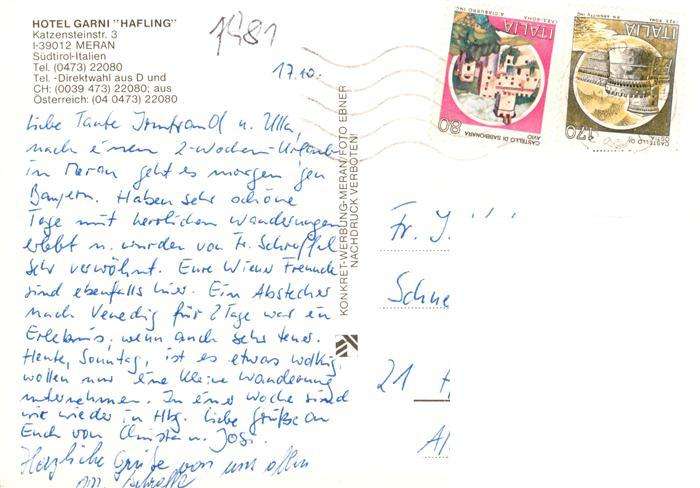 HOTEL GARNI "HAFLING"
Katzensteinstr. 3
I-39012 MERAN
Südtirol-Italien
Tel. (0473) 22080
Tel. -Direktwahl aus D und
CH: (0039 473) 22080; aus
Österreich: (04 0473) 22080
1981
17.10.
Liebe Tante Irmtraud u. Ulla,
nach einem 2-Wochen-Urlaub
in Meran geht es morgen gen
Bayern. Haben sehr schöne
Tage mit herrlichen Wanderungen
erlebt u. wurden von Fr. Schroffel
sehr verwöhnt. Eure Wiener Freunde
sind ebenfalls hier. Ein Abstecher
nach Venedig für 2 Tage war ein
Erlebnis, wenn auch sehr teuer.
Heute, Sonntag, ist es etwas wolkig,
wollen nur eine kleine Wanderung
unternehmen. In einer Woche sind
wir wieder in Hbg. Liebe Grüße an
Euch von Christa u. Josi.
Herzliche Grüße von uns allen
KONKRET-WERBUNG-MERAN/FOTO EBNER
NACHDRUCK VERBOTEN!
ITALIA
80
CASTELLO DI SABBIONARA
AVIO
ITALIA
170
CASTELLO DI
Fr. I.
Schne
21